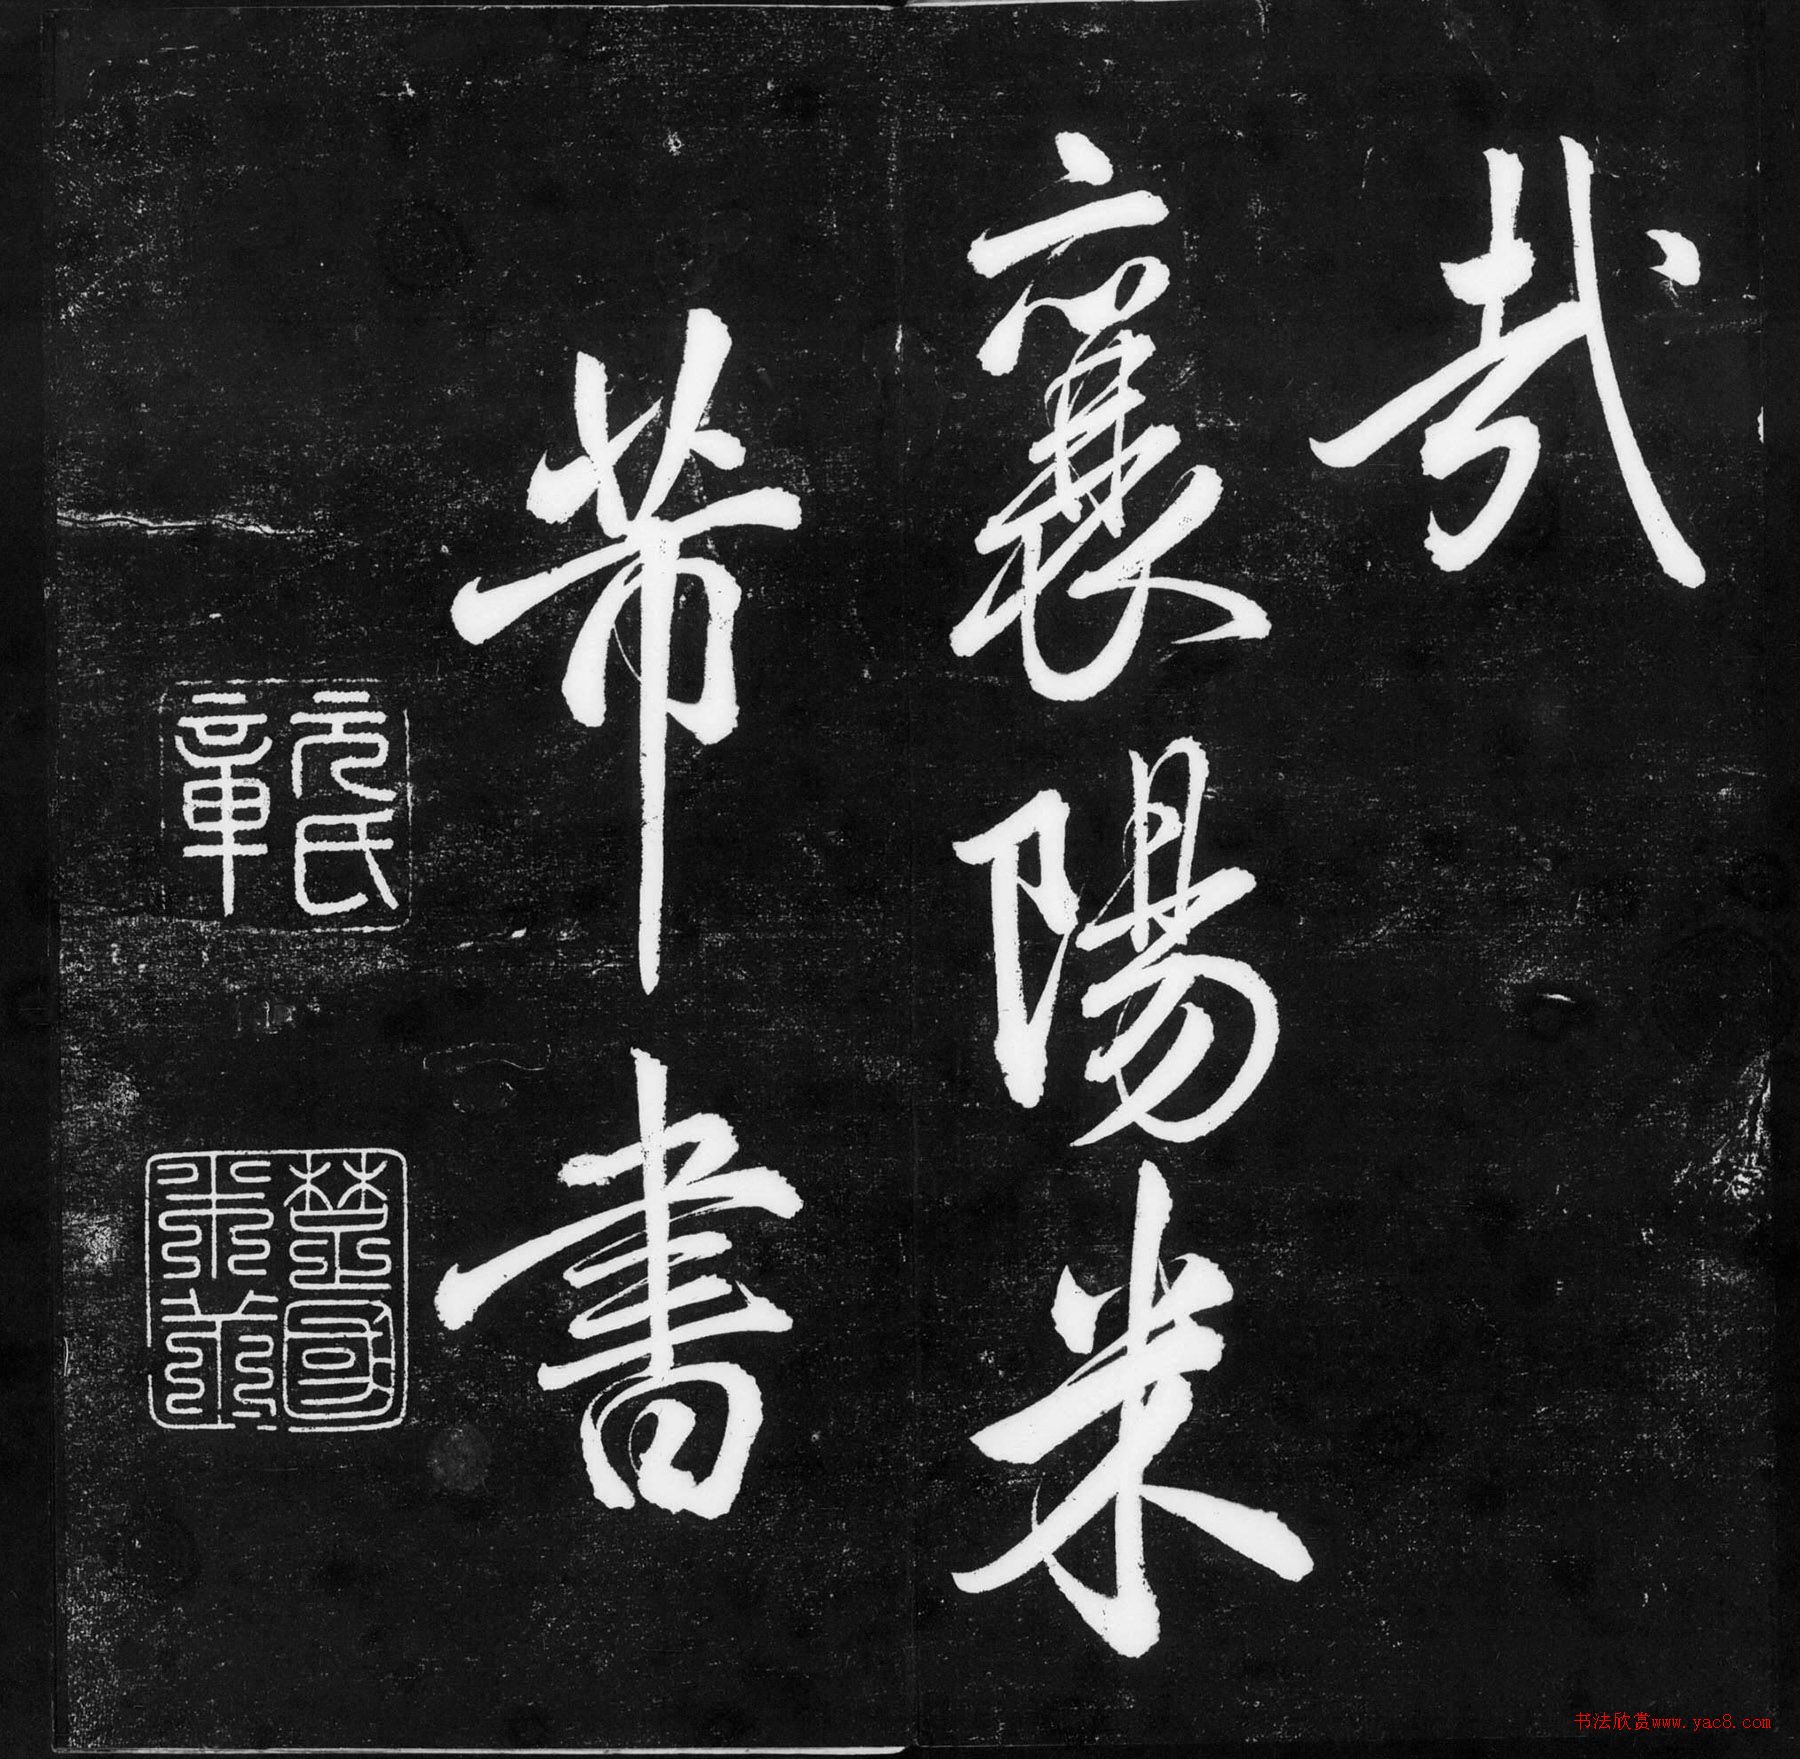 哉
襄陽米
芾書
元章氏
楚國米芾
书法欣赏www.yac8.com